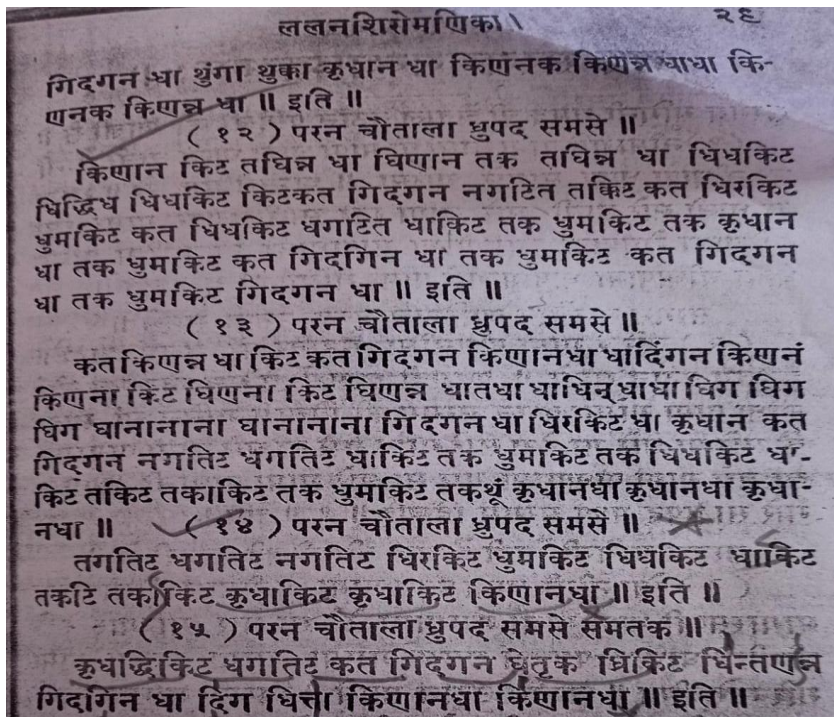 ललनशिरोमणिका। २९
गिदगन धा थुंगा थुका कृधान धा किणंनक किणन्न धाधा कि-
णनक किणन्न धा ॥ इति ॥
( १२ ) परन चौताला ध्रुपद समसे ॥
किणान किट तधिन्न धा धिणान तक तधिन्न धा धिधकिट
धिद्धिध धिधकिट किटकत गिदगन नगटित तकिट कत धिरकिट
धुमकिट कत धिधकिट धगटित धाकिट तक धुमकिट तक कृधान
धा तक धुमकिट कत गिदगिन धा तक धुमकिट कत गिदगन
धा तक धुमकिट गिदगन धा ॥ इति ॥
( १३ ) परन चौताला ध्रुपद समसे ॥
कतकिणन्न धा किट कत गिदगन किणानधा धादिंगन किणनं
किणना किट घिणना किट घिणन्न धातधा धाधिन् धाधा घिग घिग
घिग घानानाना घानानाना गिदगन धा धिरकिट धा कृधान कत
गिदगन नगतिट धगतिट धाकिट तक धुमाकिट तक धिधकिट धा-
किट तकिट तकाकिट तक धुमकिट तकथूं कृधानधा कृधानधा कृधा-
नधा ॥ ( १४ ) परन चौताला ध्रुपद समसे ॥
तगतिट धगतिट नगतिट धिरकिट धुमकिट धिधकिट धाकिट
तकटि तकाकिट कृधाकिट कृधाकिट किणानधा ॥ इति ॥
( १५ ) परन चौताला ध्रुपद समसे समतक ॥
कृधाद्धिकिट धगतिट कत गिदगन धेतृक ध्रिकिट धिन्तणन्न
गिदागिन धा दिग धित्ता किणानधा किणानधा ॥ इति ॥